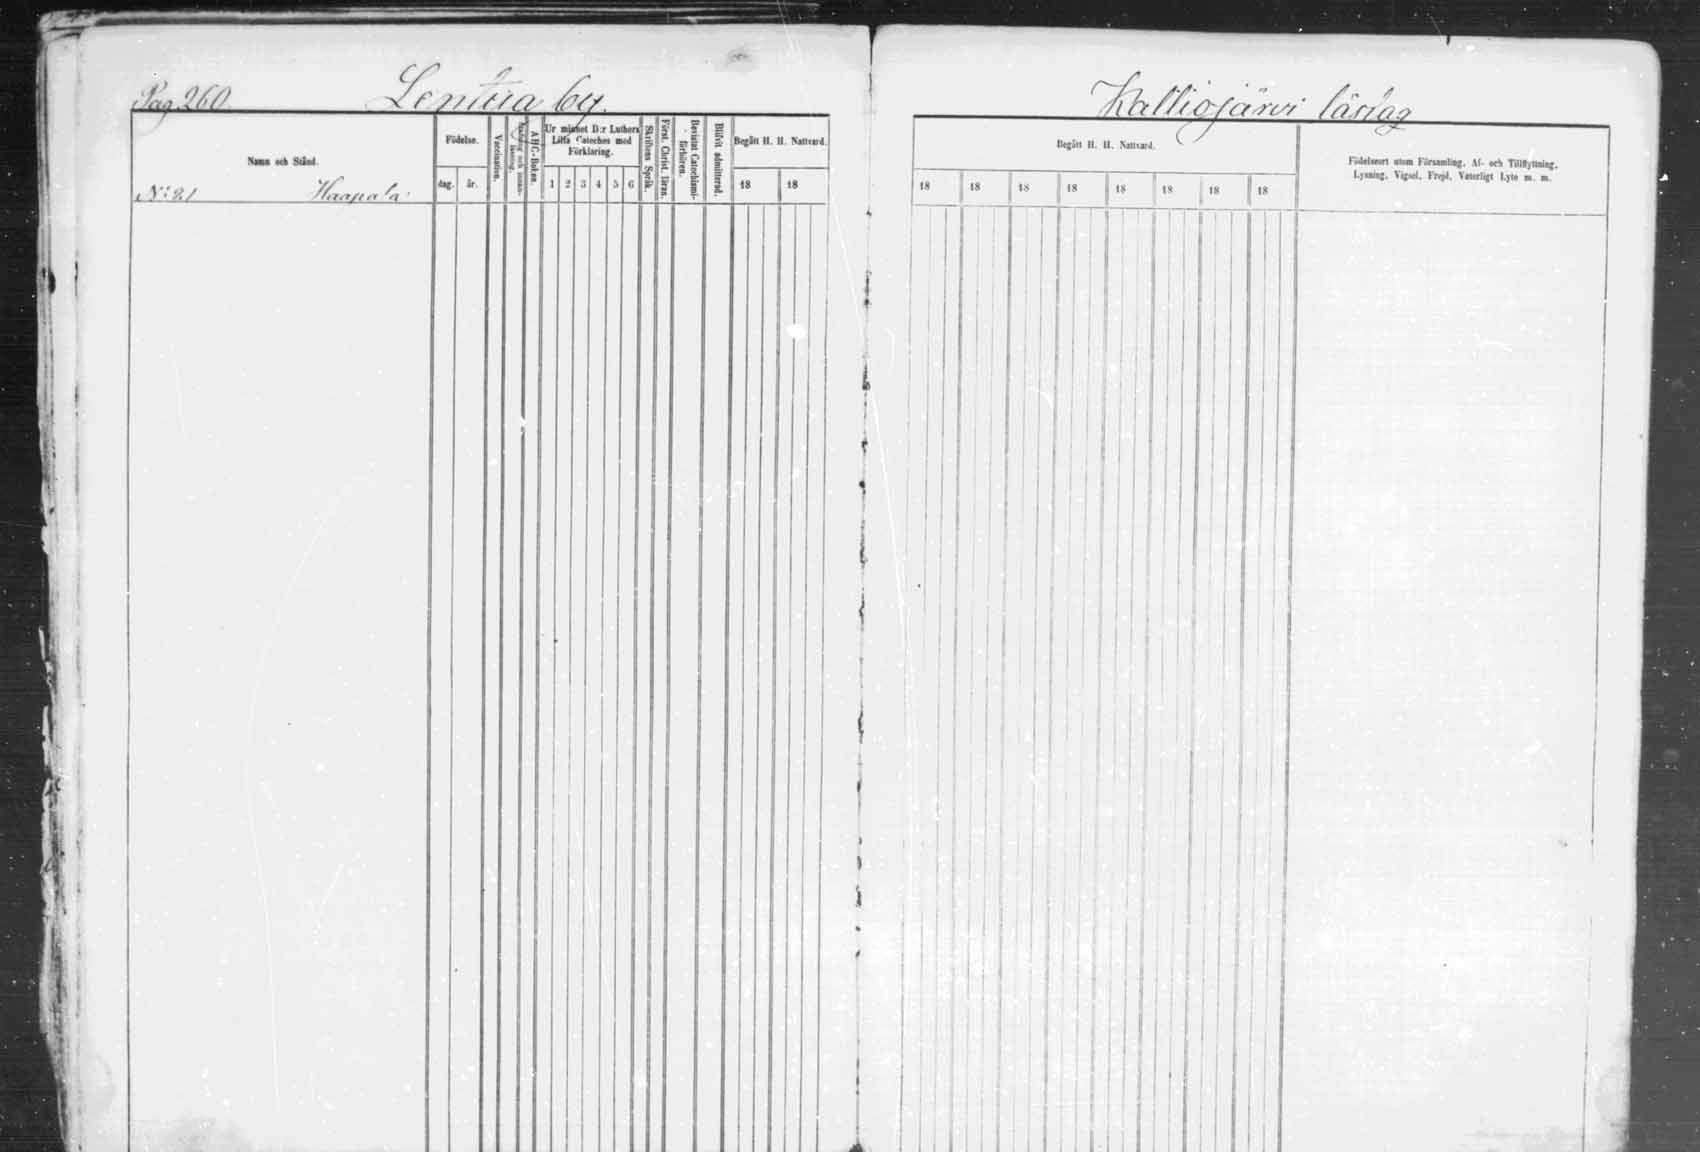 Pag. 260.
Lentua by.
Namn och Stånd.
Födelse.
dag.
år.
Vaccination.
Stafning och innan-
läsning.
ABC-Boken.
Ur minnet D:r Luthers
Lilla Cateches med
Förklaring.
1 2 3 4 5 6
Skriftens Språk.
Först. Christ. läran.
Bevistat Catechismi-
förhören.
Blifvit admitterad.
Begått H. H. Nattvard.
18 18
N:o 21 Haapala
Kalliojärvi läslag
Begått H. H. Nattvard.
18 18 18 18 18 18 18 18
Födelseort utom Församling, Af- och Tillflyttning,
Lysning, Vigsel, Frejd, Veterligt Lyte m. m.